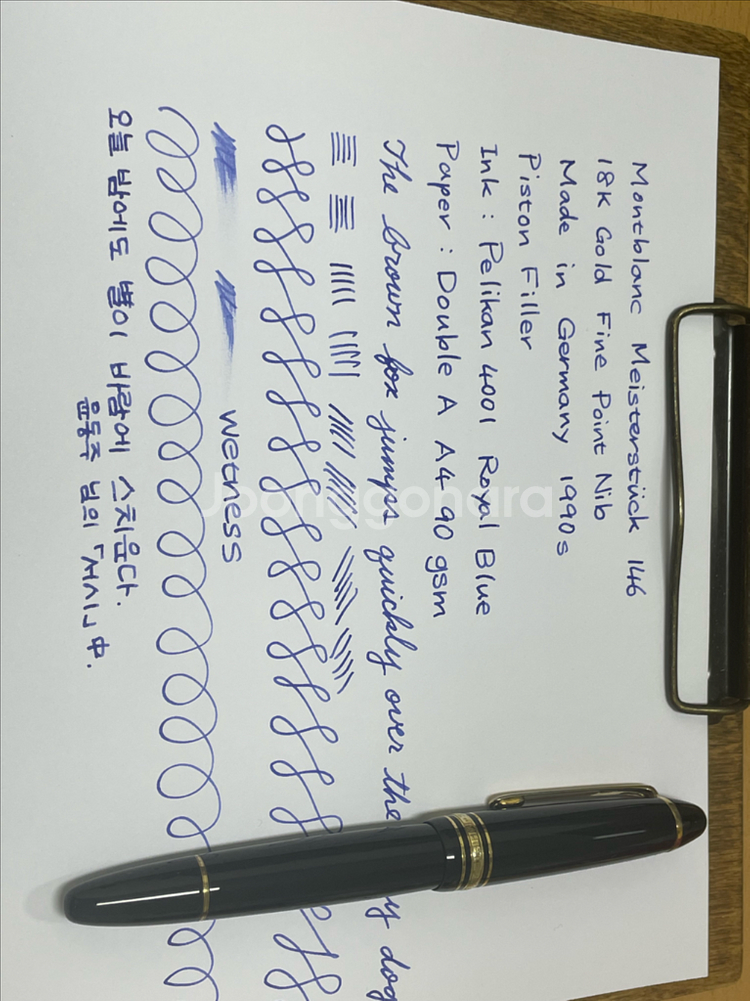 Montblanc Meisterstück 146
18K Gold Fine Point Nib
Made in Germany 1990s
Piston Filler
Ink : Pelikan 4001 Royal Blue
Paper : Double A A4 90 gsm
The brown fox jumps quickly over the dog
wetness
오늘 밤에도 별이 바람에 스치운다.
윤동주 님의 「서시」 中.
Joonggonara